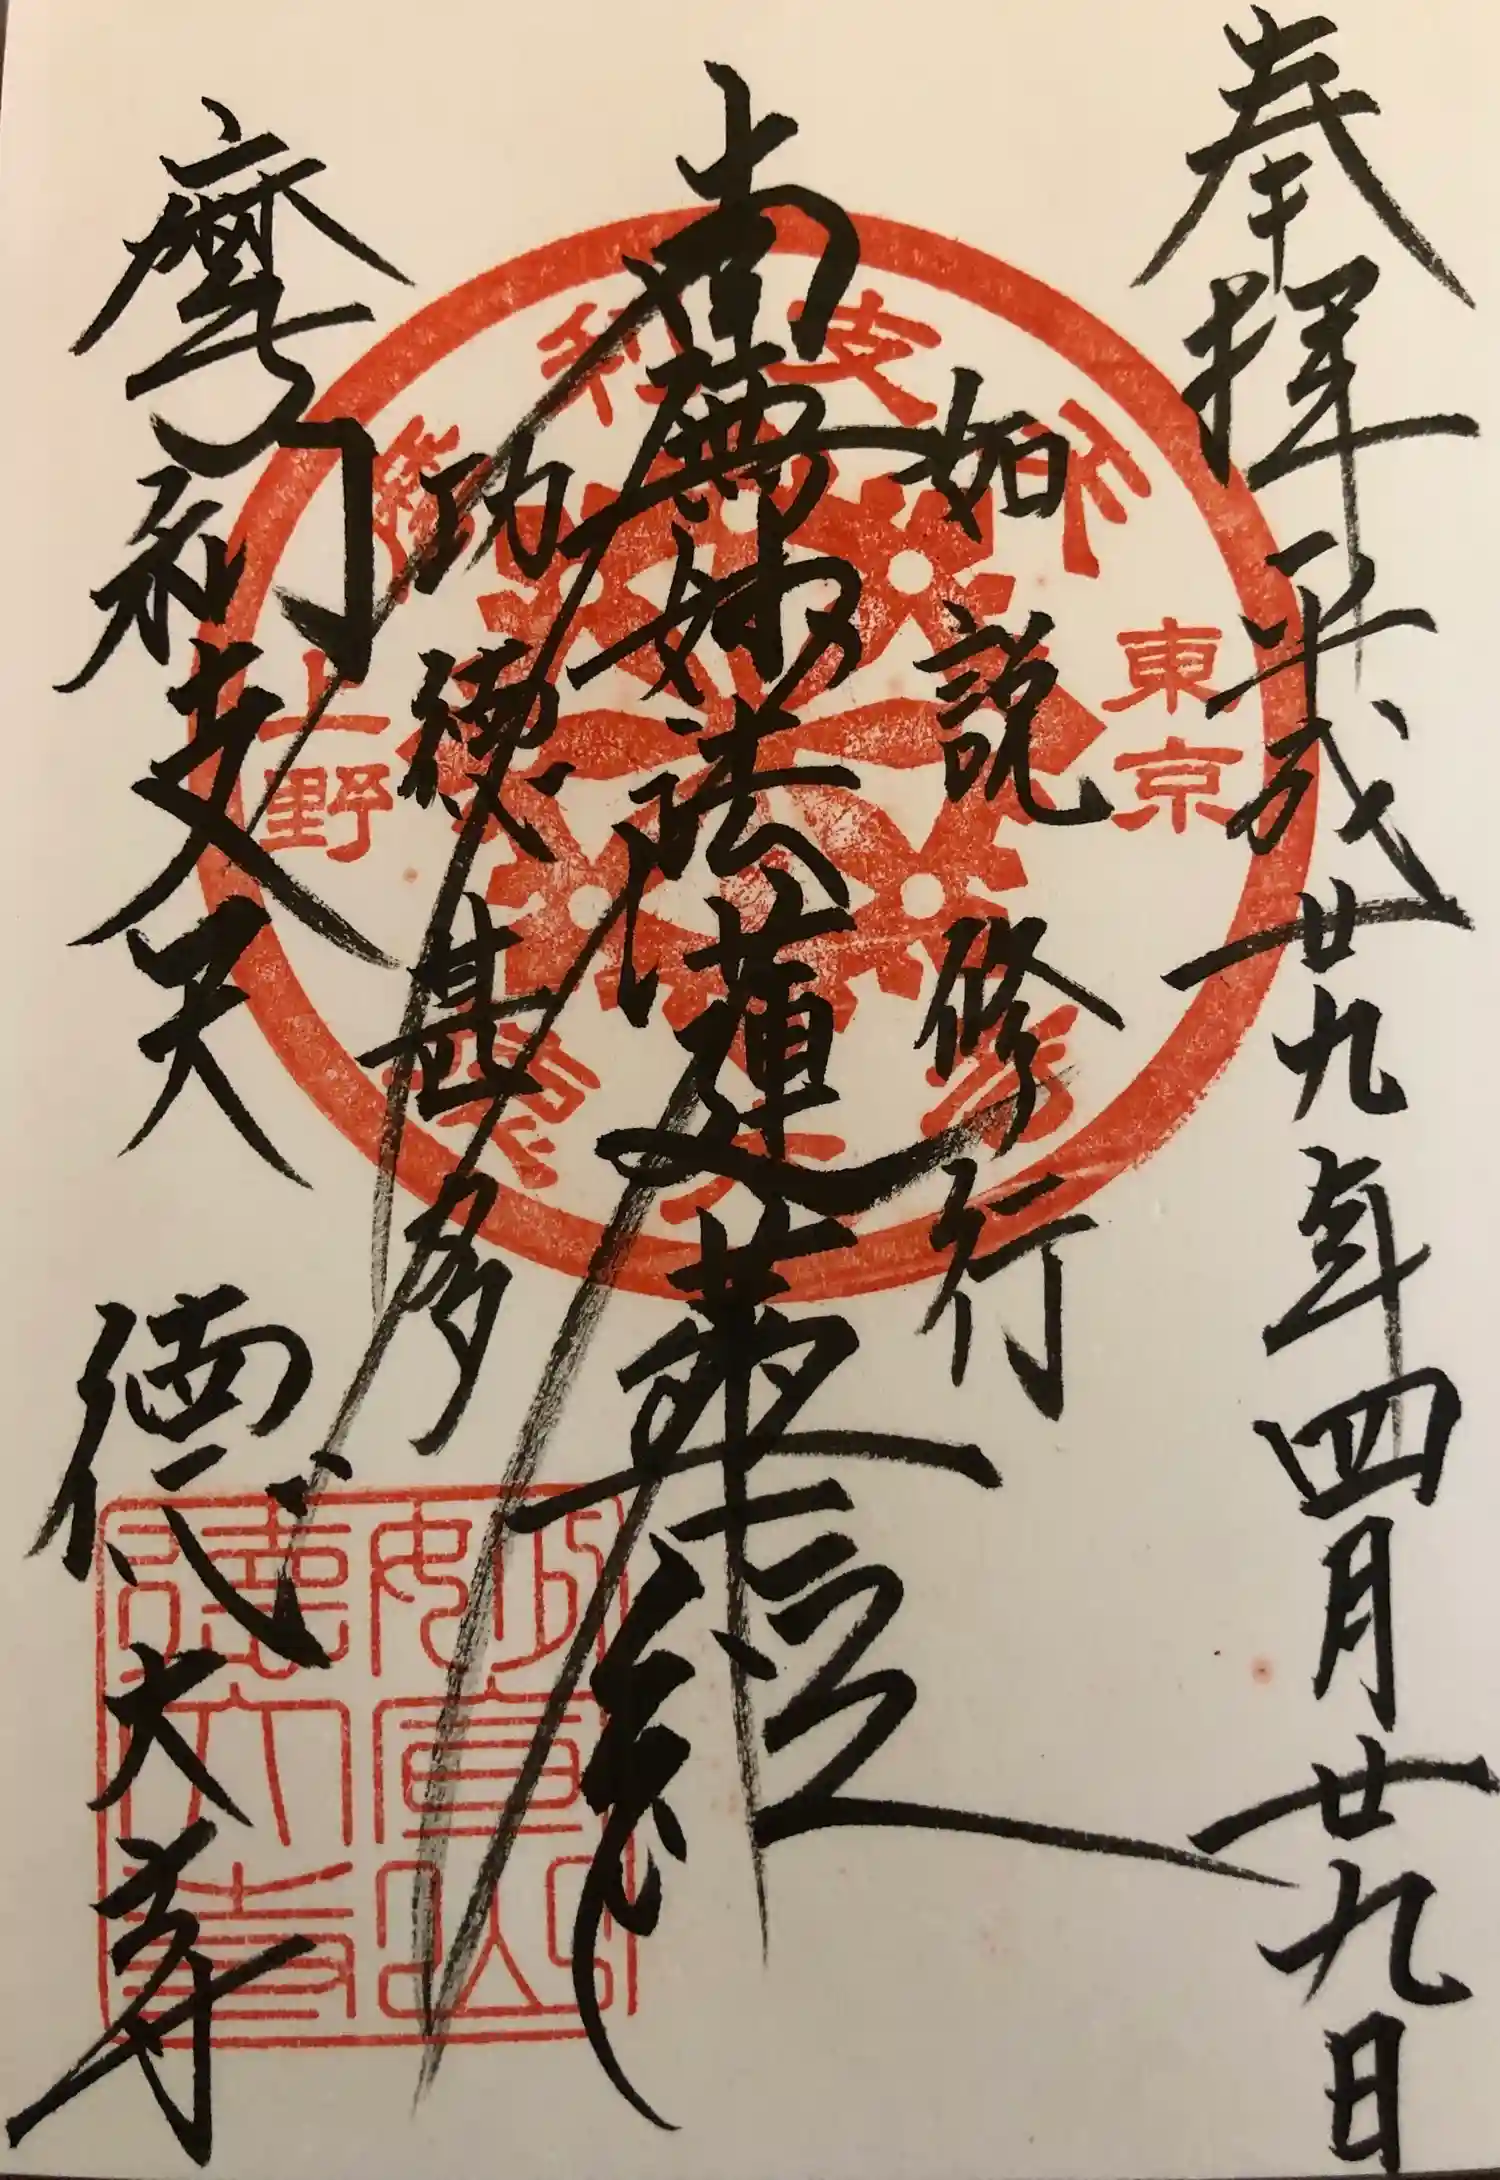 奉拝 平成廿九年四月廿九日
如説修行
南無妙法蓮華経
功徳甚多
摩利支天 徳大寺
東京
上野
妙宣山
徳大寺